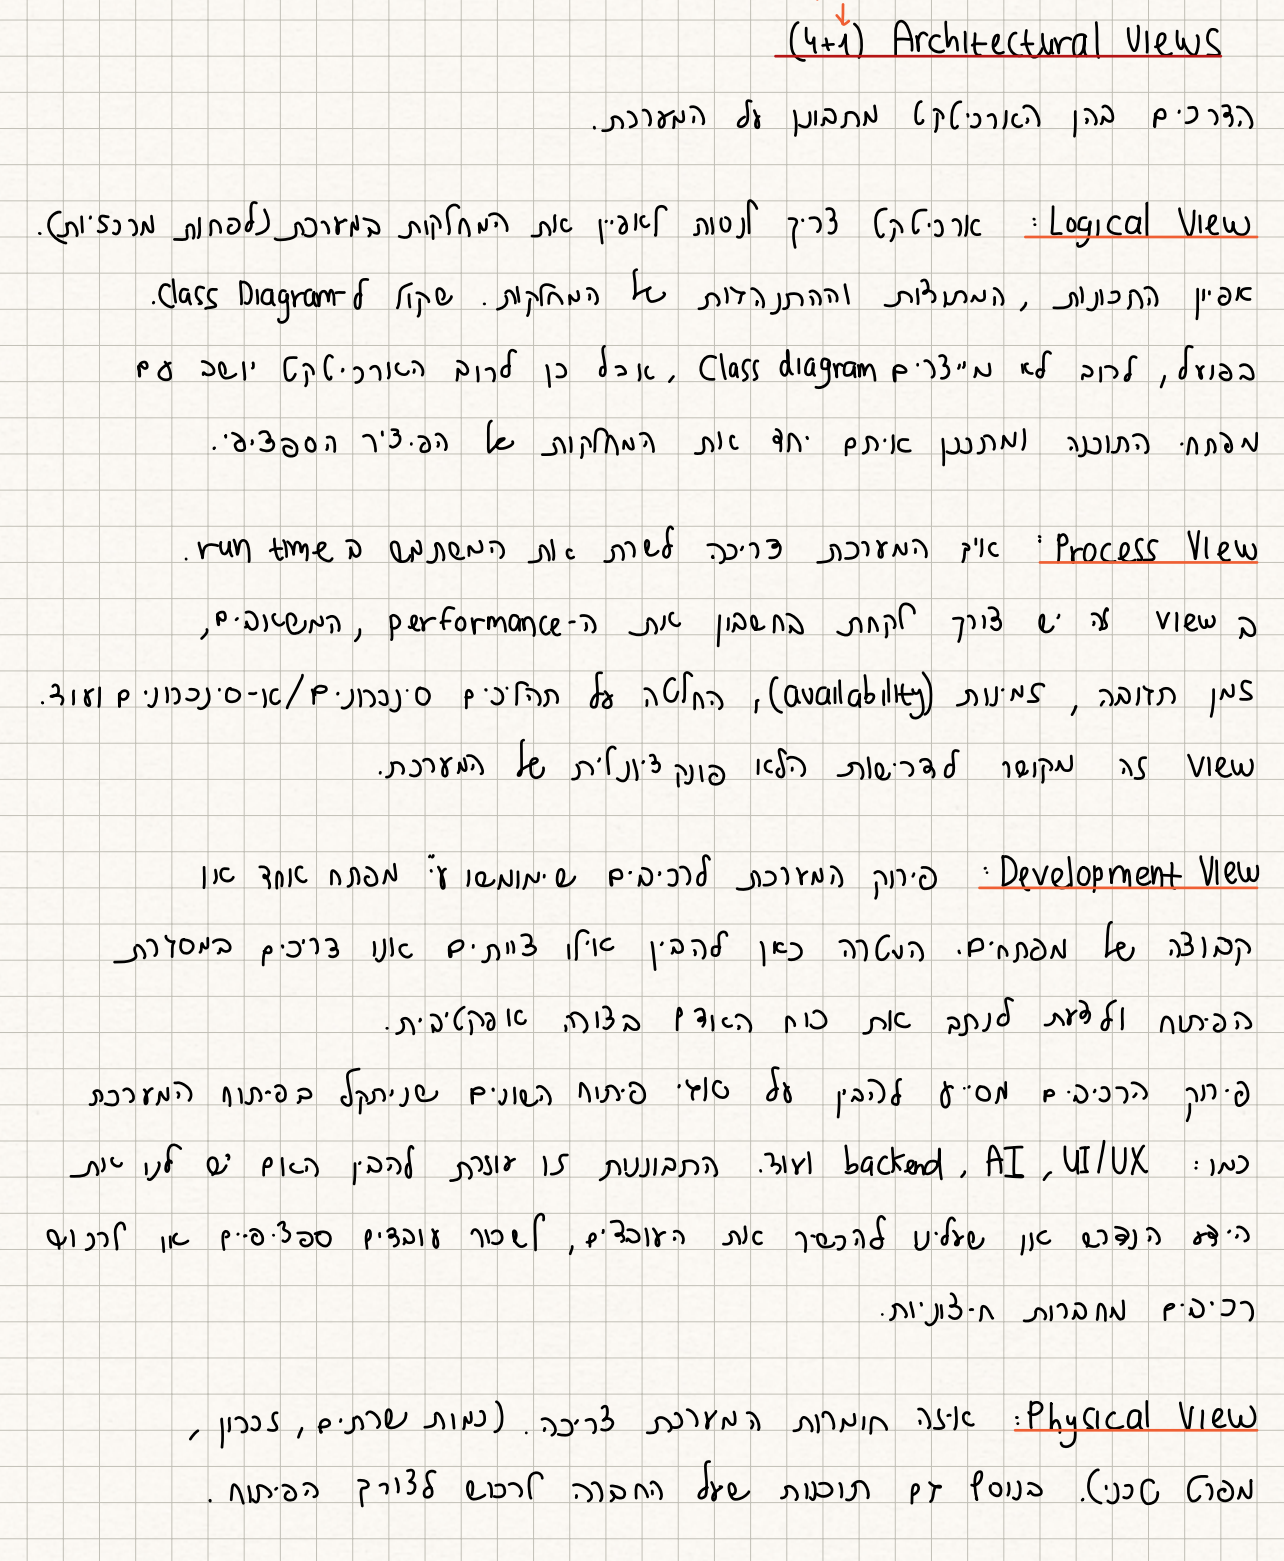 (4+1) Architectural Views
הדרכים בהן הארכיטקט מתבונן על המערכת.
Logical View: ארכיטקט צריך לנסות לאפיין את המחלקות במערכת (לפחות מרכזיות).
אפיון התכונות, המתודות וההתנהגות של המחלקות. שקול ל-Class Diagram.
בפועל, לרוב לא מייצרים Class diagram, אבל כן לרוב הארכיטקט יושב עם
מפתחי התוכנה ומתכנן איתם יחד את המחלקות של הפיצ'ר הספציפי.
Process View: איך המערכת צריכה לשרת את המשתמש ב run time.
ב view זה יש צורך לקחת בחשבון את ה-performance, המשאבים,
זמן תגובה, זמינות (availability), החלטה על תהליכים סינכרונים/א-סינכרונים ועוד.
view זה מקושר לדרישות הלא פונקציונלית של המערכת.
Development View: פירוק המערכת לרכיבים שימומשו ע"י מפתח אחד או
קבוצה של מפתחים. המטרה כאן להבין אילו צוותים אנו צריכים במסגרת
הפיתוח ולדעת לנתב את כוח האדם בצורה אפקטיבית.
פירוק הרכיבים מסייע להבין על סוגי פיתוח השונים שניתקל בפיתוח המערכת
כמו: UI/UX, AI, backend ועוד. התבוננות זו עוזרת להבין האם יש לנו את
הידע הנדרש או שעלינו להכשיר את העובדים, לשכור עובדים ספציפיים או לרכוש
רכיבים מחברות חיצוניות.
Physical View: איזה חומרות המערכת צריכה. (כמות שרתים, זכרון,
מפרט טכני). בנוסף גם תוכנות שעל החברה לרכוש לצורך הפיתוח.